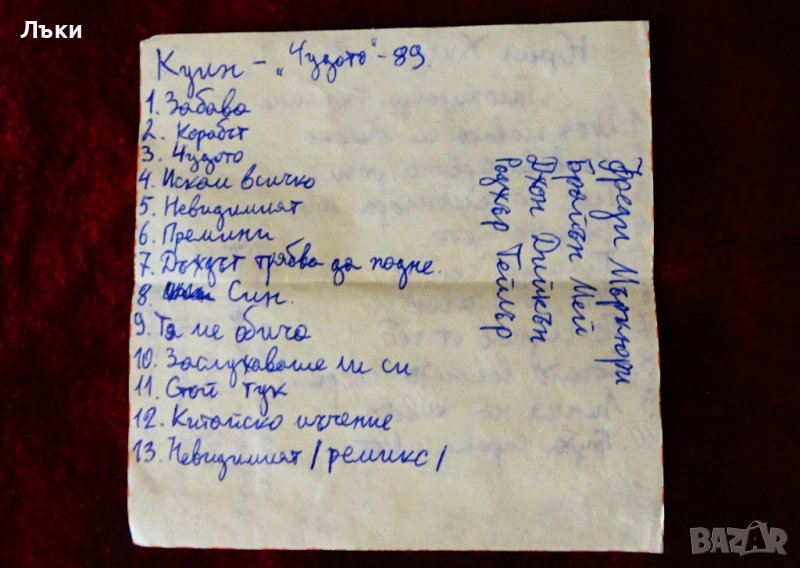 Лъки
Куин - „Чудото" - 89
1. Забава
2. Корабът
3. Чудото
4. Искам всичко
5. Невидимият
6. Премини
7. Дъждът трябва да падне.
8. Син.
9. Та ме обича
10. Заслужаваше ли си
11. Стой тук
12. Китайско мъчение
13. Невидимият /ремикс/
Фреди Мъркюри
Брайън Мей
Джон Дийкън
Роджър Тейлър
BAZAR